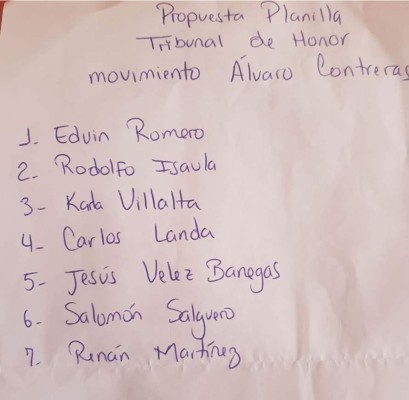 Propuesta Planilla
Tribunal de Honor
movimiento Álvaro Contreras
1. Edvin Romero
2. Rodolfo Isaula
3- Karla Villalta
4- Carlos Landa
5- Jesús Velez Banegas
6- Salomón Salguero
7. Renán Martínez